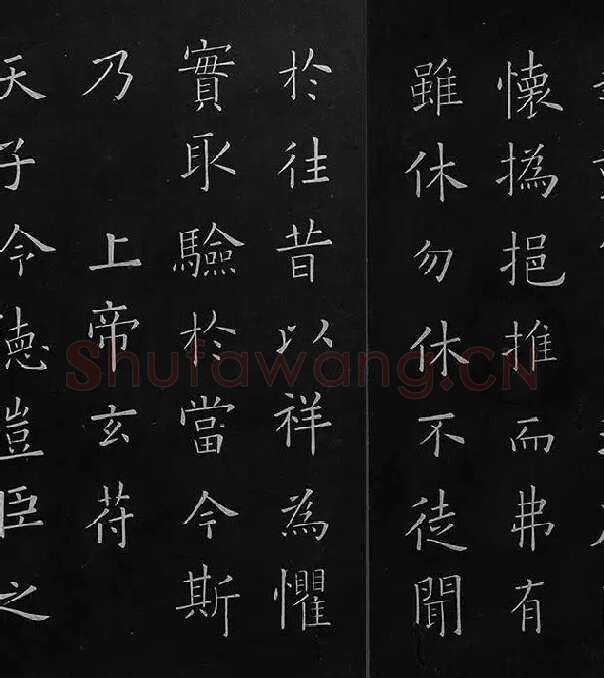 懷撝挹推而弗有
雖休勿休不徒聞
於往昔以祥為懼
實取驗於當今斯
乃 上帝玄苻
天子令德豈臣之
Shufawang.CN